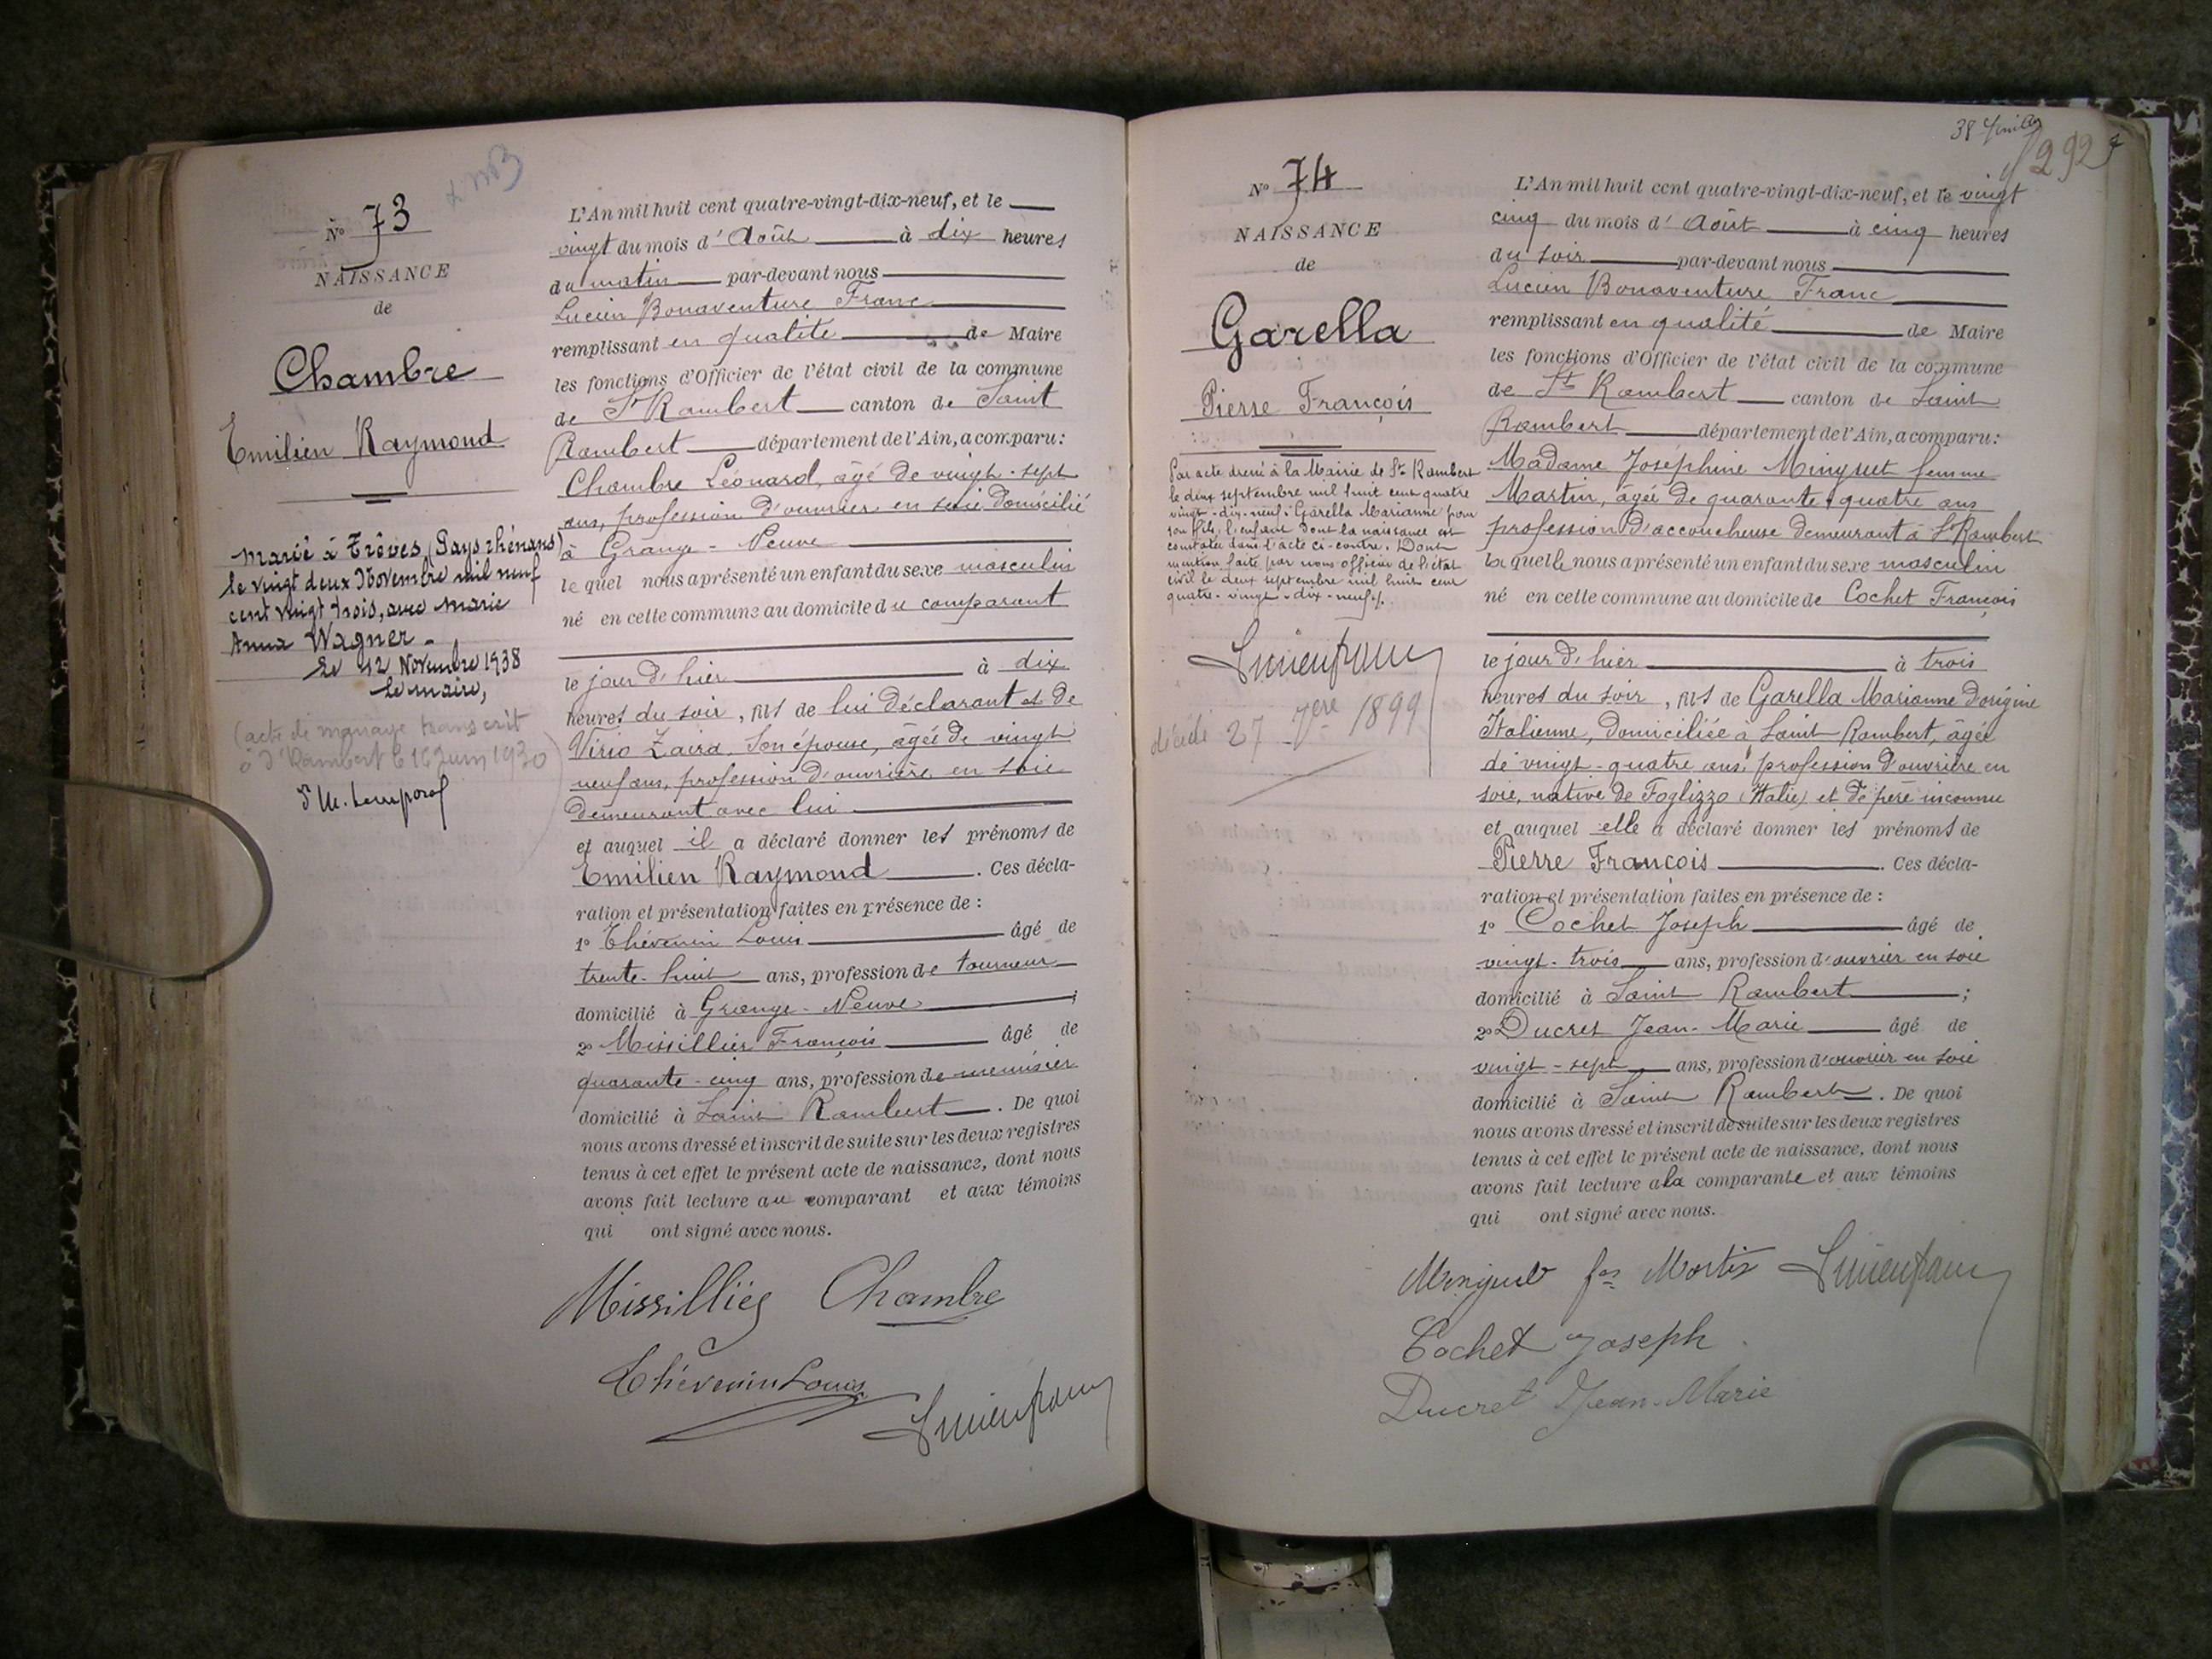 N° 73
NAISSANCE
de
Chambre
Emilien Raymond
Marié à Trêves, (Pays rhénans)
le vingt deux Novembre mil neuf
cent vingt trois, avec Marie
Anna Wagner.
le 12 Novembre 1938
le maire,
(acte de mariage transcrit
à St Rambert le 16 Juin 1930)
L'An mil huit cent quatre-vingt-dix-neuf, et le
vingt du mois d'Août à dix heures
du matin par-devant nous
Lucien Bonaventure Franc
remplissant en qualité de Maire
les fonctions d'Officier de l'état civil de la commune
de St Rambert canton de Saint
Rambert département de l'Ain, a comparu:
Chambre Léonard, âgé de vingt-sept
ans, profession d'ouvrier en soie domicilié
à Grange-Neuve
lequel nous a présenté un enfant du sexe masculin
né en cette commune au domicile du comparant
le jour d'hier à dix
heures du soir, fils de lui déclarant et de
Virio Zaira, son épouse, âgée de vingt
neuf ans, profession d'ouvrière en soie
demeurant avec lui
et auquel il a déclaré donner les prénoms de
Emilien Raymond. Ces décla-
ration et présentation faites en présence de :
1° Thévenin Louis âgé de
trente-huit ans, profession de tourneur
domicilié à Grange-Neuve ;
2° Missillier François âgé de
quarante-cinq ans, profession de menuisier
domicilié à Saint Rambert. De quoi
nous avons dressé et inscrit de suite sur les deux registres
tenus à cet effet le présent acte de naissance, dont nous
avons fait lecture au comparant et aux témoins
qui ont signé avec nous.
Missillier Chambre
Thévenin Louis
Lucien Franc
38e feuillet
292
N° 74
NAISSANCE
de
Garella
Pierre François
Par acte dressé à la Mairie de St Rambert
le deux septembre mil huit cent quatre
vingt-dix-neuf. Garella Marianne pour
son fils, l'enfant dont la naissance est
constatée dans l'acte ci-contre. Dont
mention faite par nous officier de l'état
civil le deux septembre mil huit cent
quatre-vingt-dix-neuf.
Lucien Franc
décédé 27 7bre 1899
L'An mil huit cent quatre-vingt-dix-neuf, et le vingt
cinq du mois d'Août à cinq heures
du soir par-devant nous
Lucien Bonaventure Franc
remplissant en qualité de Maire
les fonctions d'Officier de l'état civil de la commune
de St Rambert canton de Saint
Rambert département de l'Ain, a comparu:
Madame Joséphine Minguet femme
Martin, âgée de quarante quatre ans
profession d'accoucheuse demeurant à St Rambert
laquelle nous a présenté un enfant du sexe masculin
né en cette commune au domicile de Cochet François
le jour d'hier à trois
heures du soir, fils de Garella Marianne d'origine
Italienne, domiciliée à Saint Rambert, âgée
de vingt-quatre ans, profession d'ouvrière en
soie, native de Foglizzo (Italie) et de père inconnu
et auquel elle a déclaré donner les prénoms de
Pierre François. Ces décla-
ration et présentation faites en présence de :
1° Cochet Joseph âgé de
vingt-trois ans, profession d'ouvrier en soie
domicilié à Saint Rambert ;
2° Ducret Jean-Marie âgé de
vingt-sept ans, profession d'ouvrier en soie
domicilié à Saint Rambert. De quoi
nous avons dressé et inscrit de suite sur les deux registres
tenus à cet effet le présent acte de naissance, dont nous
avons fait lecture à la comparante et aux témoins
qui ont signé avec nous.
Minguet fe Martin Lucien Franc
Cochet Joseph
Ducret Jean-Marie